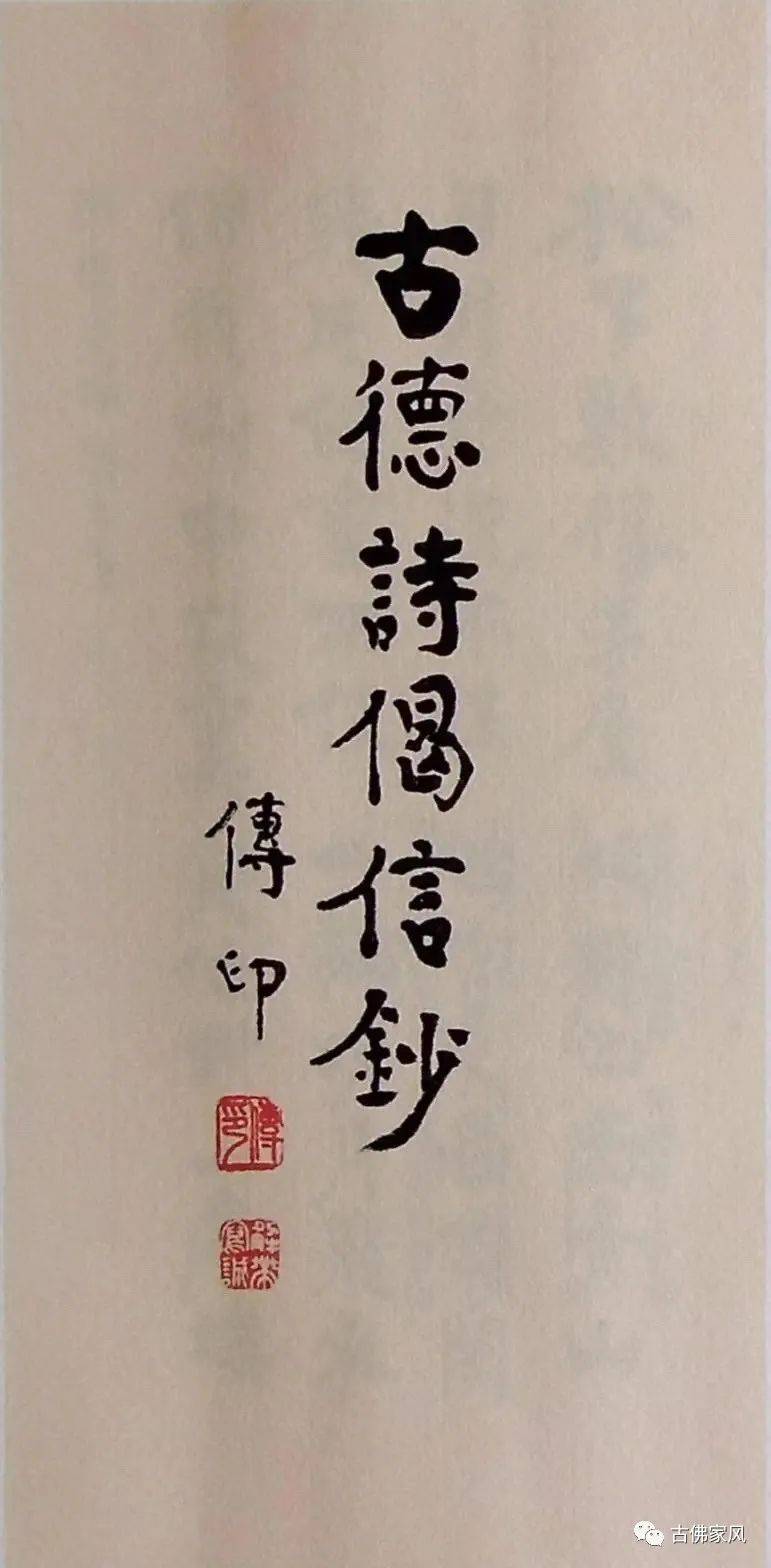 古德詩偈信鈔
傳印
傳印
古佛家风